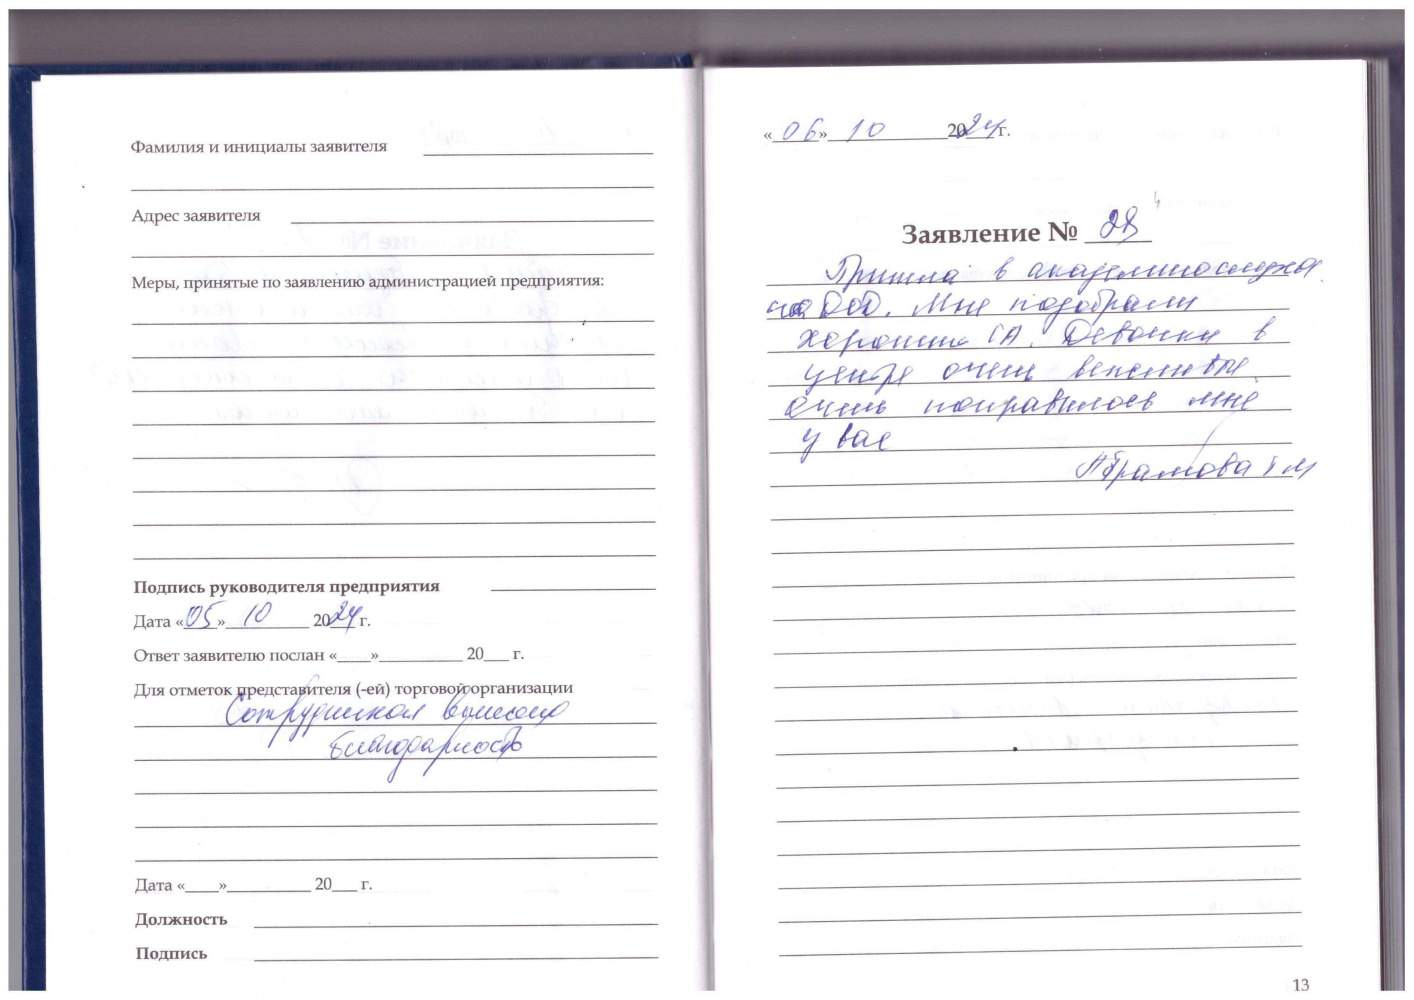 Фамилия и инициалы заявителя
Адрес заявителя
Меры, принятые по заявлению администрацией предприятия:
Подпись руководителя предприятия
Дата «05» 10 2024 г.
Ответ заявителю послан «    » 20    г.
Для отметок представителя (-ей) торговой организации
Сотрудникам вынесена
благодарность
Дата «    » 20    г.
Должность
Подпись
«06» 10 2024 г.
Заявление № 28
Пришла в академию слуха
на DOD. Мне подобрали
хорошие СА. Девочки в
центре очень вежливые
очень понравилось мне
у вас
Абрамова
13